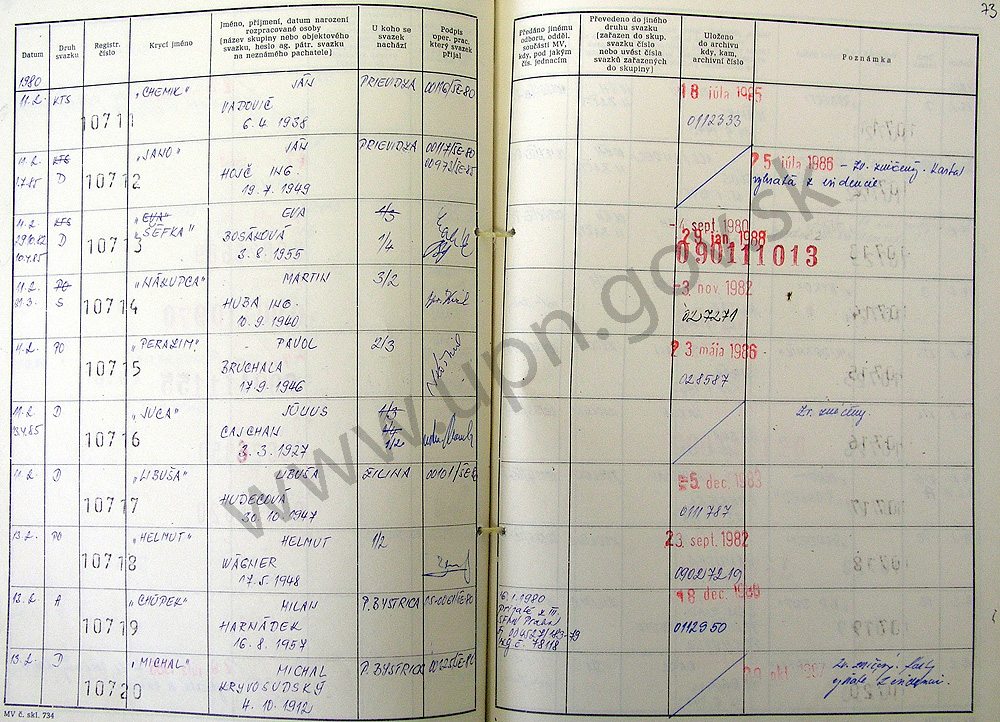 73
Datum
Druh svazku
Registr. číslo
Krycí jméno
Jméno, příjmení, datum narození
rozpracované osoby
(název skupiny nebo objektového
svazku, heslo ag. pátr. svazku
na neznámého pachatele)
U koho se
svazek
nachází
Podpis
oper. prac.
který svazek
přijal
Předáno jinému
odboru, odděl.
součásti MV,
kdy, pod jakým
čís. jednacím
Převedeno do jiného
druhu svazku
(zařazen do skup.
svazku číslo
nebo uvést čísla
svazků zařazených
do skupiny)
Uloženo
do archivu
kdy, kam,
archivní číslo
Poznámka
1980
11.2. KTS 10711 "CHEMIK" JÁN PRIEVIDZA 00116/SE-80 18 júla 1985
VADOVIČ
6.4. 1938 0112333
11.2. KTS 10712 "JANO" JÁN PRIEVIDZA 00117/SE-80 25 júla 1986 – Zv. zničený. Karta
1.7.85 D HOJČ ING. 00973/SE-85 vybratá z evidencie
19.7.1949
11.2. KTS 10713 "EVA" EVA 4/3 -4. sept. 1980
29.10.82 D "ŠEFKA" BOSÁKOVÁ 1/4 29. jan. 1988
10.4.85 3.8.1955 090111013
11.2. PO 10714 "NÁKUPCA" MARTIN 3/2 -3 nov. 1982
S HUBA ING. 027271
10.9.1940
11.2. PO 10715 "PERAZIM" PAVOL 2/3 23 mája 1986
BRUCHALA 028587
17.9.1946
11.2. D 10716 "JUCA" JÚLIUS 4/3 Zv. zničený.
CAJCHAN 1/2
3.3.1927
11.2. D 10717 "LIBUŠA" LIBUŠA ŽILINA -5. dec. 1983
HUDECOVÁ 0111787
30.10.1947
13.2. PO 10718 "HELMUT" HELMUT 1/2 23. sept. 1982
WÄGNER 09027219
17.5.1948
13.2. A 10719 "CHÚPEK" MILAN P. BYSTRICA 16.1.1980 18 dec.
HARNÁDEK prijaté z III.
16.8.1957 SFMV Praha 0112950
reg č. 78118
13.2. D 10720 "MICHAL" MICHAL P. BYSTRICA Zv. zničený.
KRYVOSUDSKÝ
4.10.1912
MV č. skl. 734
www.upn.gov.sk